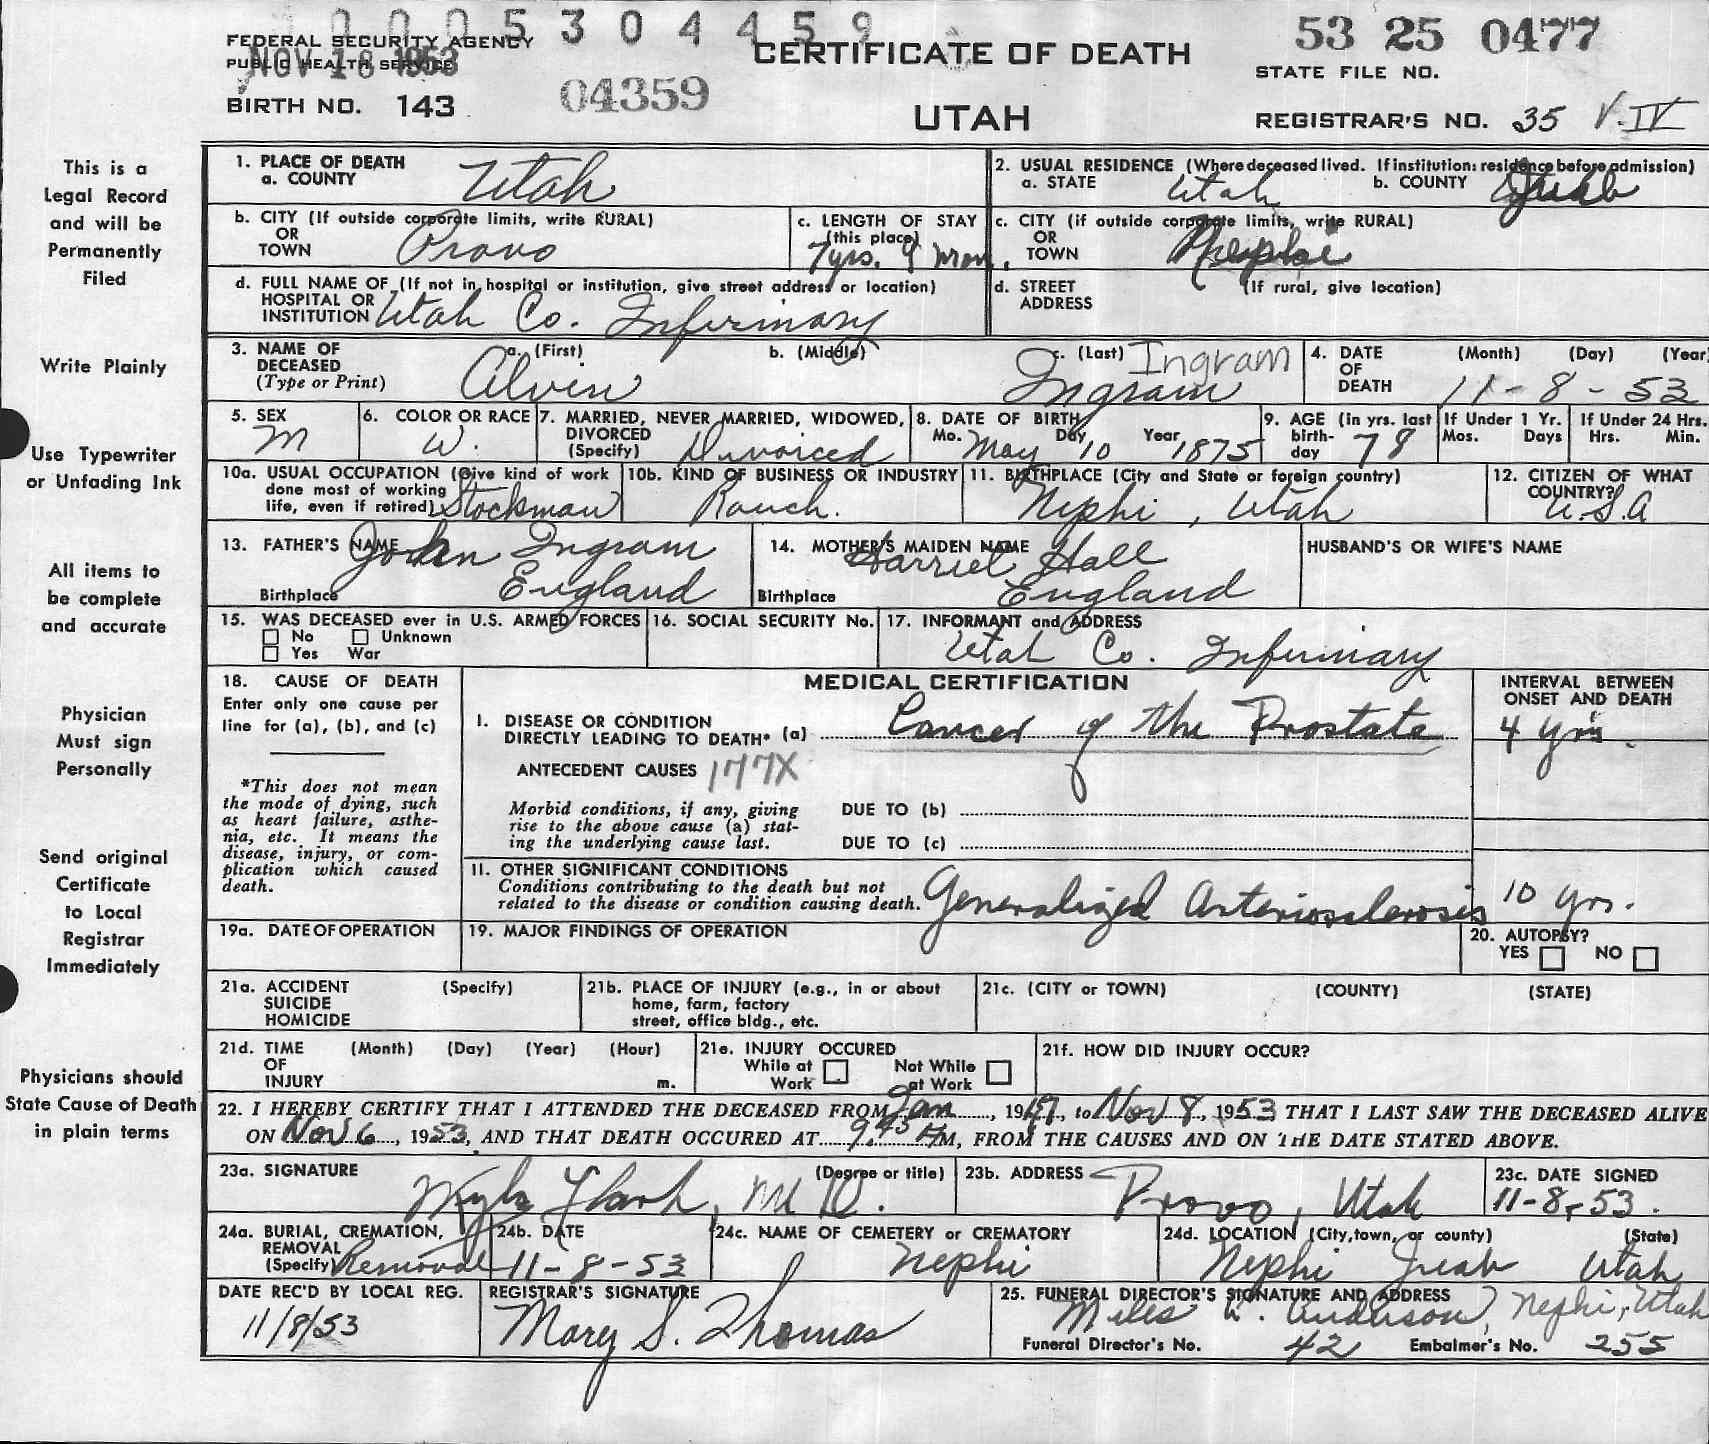 0005304459
FEDERAL SECURITY AGENCY
PUBLIC HEALTH SERVICE
NOV 18 1953
BIRTH NO. 143
04359
CERTIFICATE OF DEATH
UTAH
53 25 0477
STATE FILE NO.
REGISTRAR'S NO. 35 V.IV
This is a
Legal Record
and will be
Permanently
Filed
Write Plainly
Use Typewriter
or Unfading Ink
All items to
be complete
and accurate
Physician
Must sign
Personally
Send original
Certificate
to Local
Registrar
Immediately
Physicians should
State Cause of Death
in plain terms
1. PLACE OF DEATH
a. COUNTY Utah
2. USUAL RESIDENCE (Where deceased lived. If institution: residence before admission)
a. STATE Utah b. COUNTY Juab
b. CITY (If outside corporate limits, write RURAL)
OR
TOWN Provo
c. LENGTH OF STAY
(this place)
7 yrs. 9 mon.
c. CITY (if outside corporate limits, write RURAL)
OR
TOWN Nephi
d. FULL NAME OF (If not in hospital or institution, give street address or location)
HOSPITAL OR
INSTITUTION Utah Co. Infirmary
d. STREET (If rural, give location)
ADDRESS
3. NAME OF a. (First) b. (Middle) c. (Last) Ingram
DECEASED
(Type or Print) Alvin Ingram
4. DATE (Month) (Day) (Year)
OF
DEATH 11 - 8 - 53
5. SEX
M
6. COLOR OR RACE
W.
7. MARRIED, NEVER MARRIED, WIDOWED,
DIVORCED
(Specify) Divorced
8. DATE OF BIRTH
Mo. May Day 10 Year 1875
9. AGE (in yrs. last
birth-
day 78
If Under 1 Yr.
Mos. Days
If Under 24 Hrs.
Hrs. Min.
10a. USUAL OCCUPATION (Give kind of work
done most of working
life, even if retired) Stockman
10b. KIND OF BUSINESS OR INDUSTRY
Ranch.
11. BIRTHPLACE (City and State or foreign country)
Nephi, Utah
12. CITIZEN OF WHAT
COUNTRY?
U.S.A
13. FATHER'S NAME John Ingram
Birthplace England
14. MOTHER'S MAIDEN NAME
Harriet Hall
Birthplace England
HUSBAND'S OR WIFE'S NAME
15. WAS DECEASED ever in U.S. ARMED FORCES
No Unknown
Yes War
16. SOCIAL SECURITY No.
17. INFORMANT and ADDRESS
Utah Co. Infirmary
18. CAUSE OF DEATH
Enter only one cause per
line for (a), (b), and (c)
*This does not mean
the mode of dying, such
as heart failure, asthe-
nia, etc. It means the
disease, injury, or com-
plication which caused
death.
MEDICAL CERTIFICATION
INTERVAL BETWEEN
ONSET AND DEATH
I. DISEASE OR CONDITION
DIRECTLY LEADING TO DEATH* (a) Cancer of the Prostate 4 yrs.
ANTECEDENT CAUSES 177X
Morbid conditions, if any, giving
rise to the above cause (a) stat-
ing the underlying cause last.
DUE TO (b)
DUE TO (c)
II. OTHER SIGNIFICANT CONDITIONS
Conditions contributing to the death but not
related to the disease or condition causing death. Generalized Arteriosclerosis 10 yrs.
19a. DATE OF OPERATION
19. MAJOR FINDINGS OF OPERATION
20. AUTOPSY?
YES NO
21a. ACCIDENT (Specify)
SUICIDE
HOMICIDE
21b. PLACE OF INJURY (e.g., in or about
home, farm, factory
street, office bldg., etc.
21c. (CITY or TOWN) (COUNTY) (STATE)
21d. TIME (Month) (Day) (Year) (Hour)
OF
INJURY m.
21e. INJURY OCCURED
While at Work
Not While at Work
21f. HOW DID INJURY OCCUR?
22. I HEREBY CERTIFY THAT I ATTENDED THE DECEASED FROM Jan, 1947, to Nov 8, 1953 THAT I LAST SAW THE DECEASED ALIVE
ON Nov 6, 1953, AND THAT DEATH OCCURED AT 9:45 AM, FROM THE CAUSES AND ON THE DATE STATED ABOVE.
23a. SIGNATURE (Degree or title)
M.D.
23b. ADDRESS
Provo, Utah
23c. DATE SIGNED
11-8-53.
24a. BURIAL, CREMATION,
REMOVAL
(Specify) Removal
24b. DATE
11-8-53
24c. NAME OF CEMETERY or CREMATORY
Nephi
24d. LOCATION (City, town, or county) (State)
Nephi Juab Utah
DATE REC'D BY LOCAL REG.
11/8/53
REGISTRAR'S SIGNATURE
Mary S. Thomas
25. FUNERAL DIRECTOR'S SIGNATURE AND ADDRESS
Miles Anderson, Nephi, Utah
Funeral Director's No. 42 Embalmer's No. 255